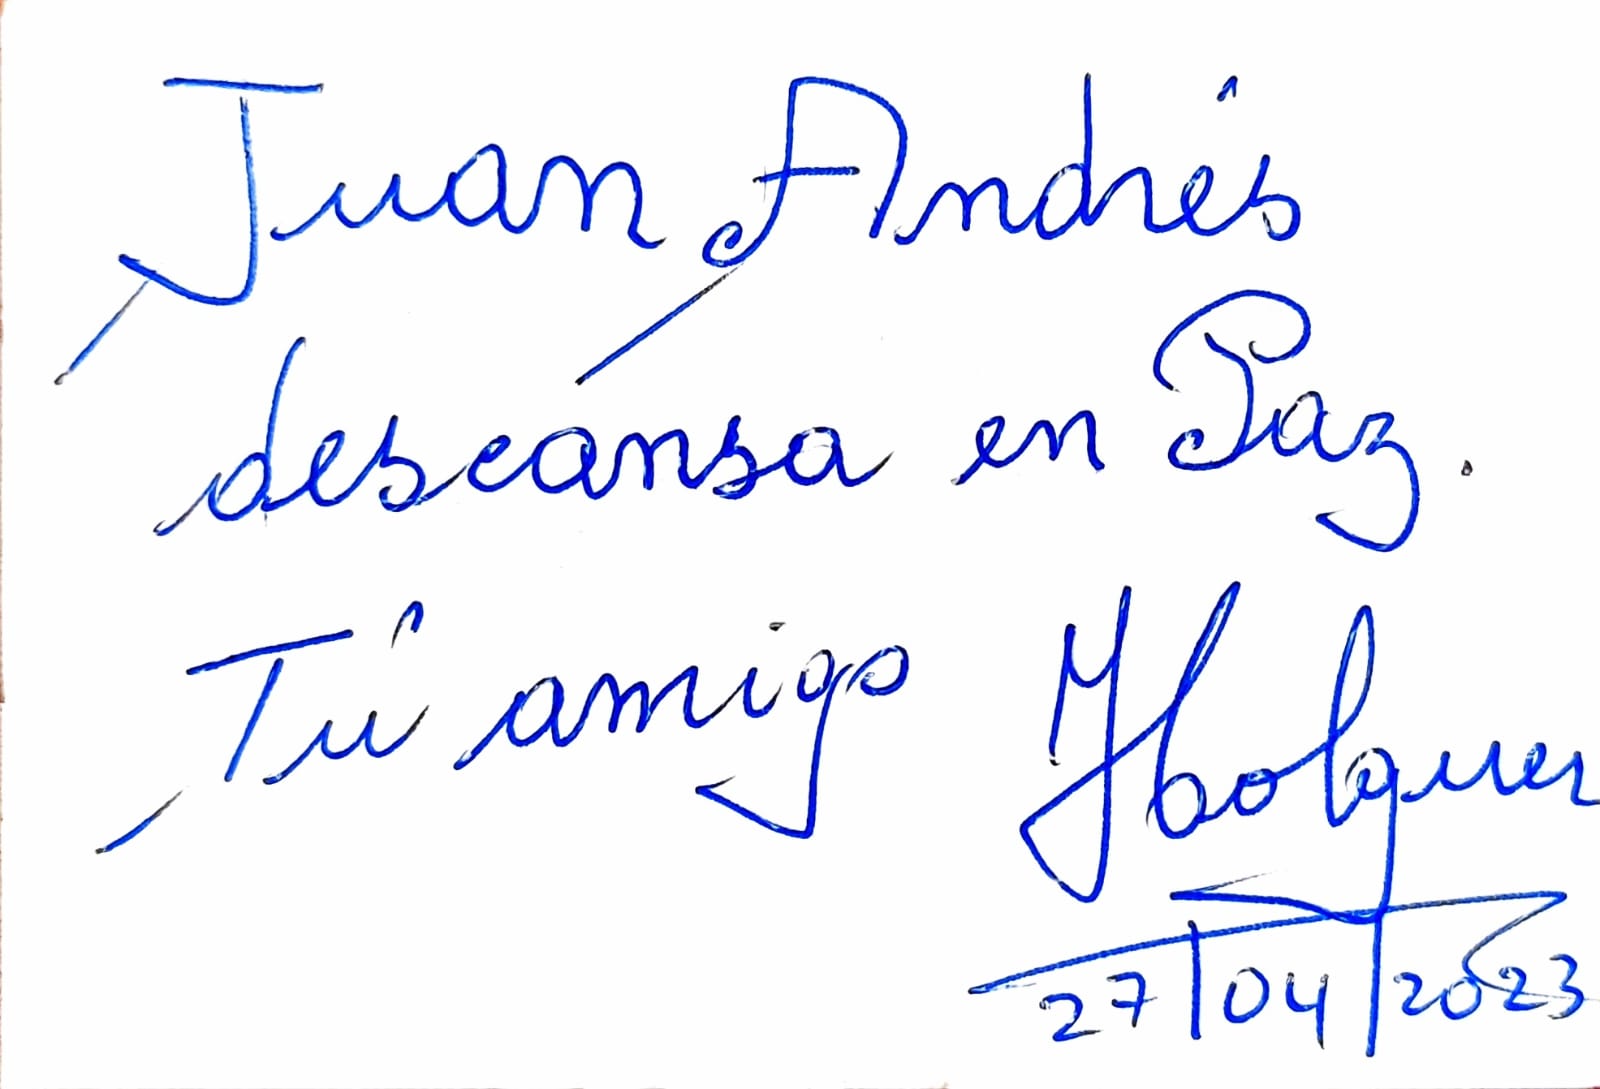 Juan Andrés
descansa en Paz.
Tú amigo Holguer
27/04/2023